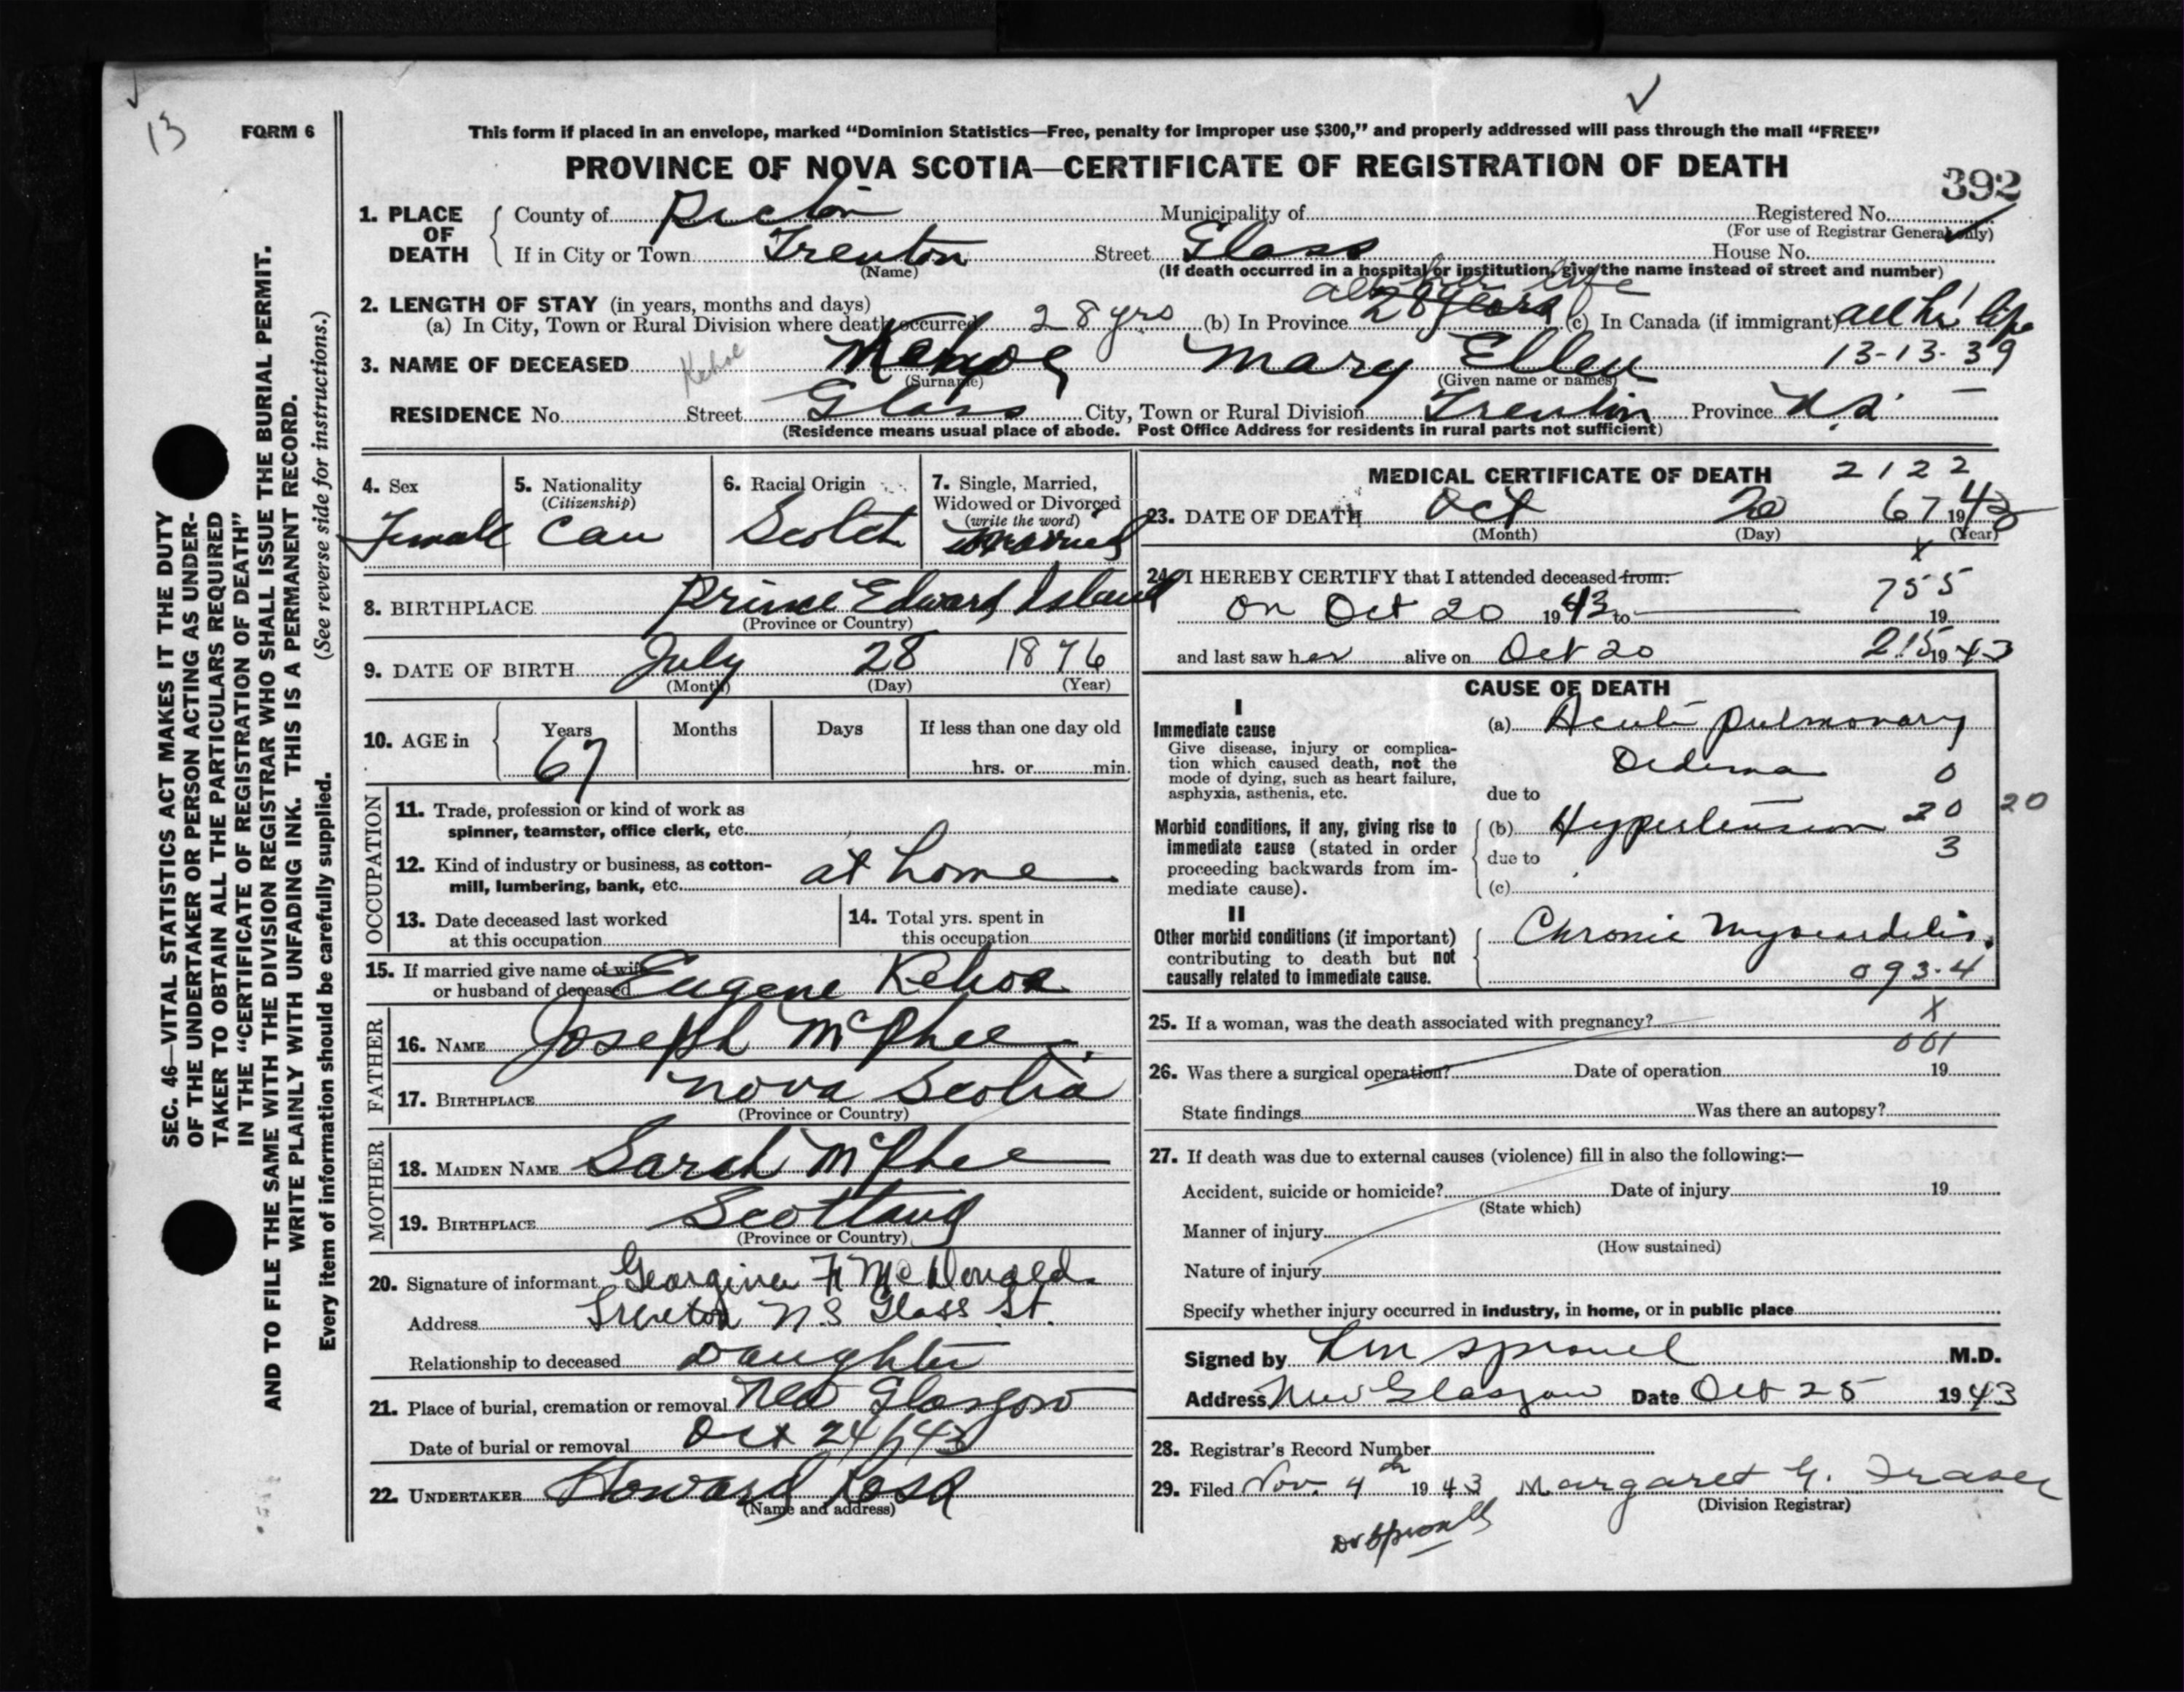 13
FORM 6
This form if placed in an envelope, marked “Dominion Statistics—Free, penalty for improper use $300,” and properly addressed will pass through the mail “FREE”
PROVINCE OF NOVA SCOTIA—CERTIFICATE OF REGISTRATION OF DEATH
392
1. PLACE OF DEATH
County of Pictou Municipality of Registered No.
(For use of Registrar General only)
If in City or Town Trenton Street Glass House No.
(Name) (If death occurred in a hospital or institution, give the name instead of street and number)
2. LENGTH OF STAY (in years, months and days) all her life
(a) In City, Town or Rural Division where death occurred 28 yrs (b) In Province 28 years (c) In Canada (if immigrant) all her life
3. NAME OF DECEASED Kehoe Kehoe Mary Ellen 13-13-39
(Surname) (Given name or names)
RESIDENCE No. Street Glass City, Town or Rural Division Trenton Province N.S.
(Residence means usual place of abode. Post Office Address for residents in rural parts not sufficient)
4. Sex Female
5. Nationality (Citizenship) Can
6. Racial Origin Scotch
7. Single, Married, Widowed or Divorced (write the word) Married
8. BIRTHPLACE Prince Edward Island
(Province or Country)
9. DATE OF BIRTH July 28 1876
(Month) (Day) (Year)
10. AGE in Years 67 Months Days If less than one day old
hrs. or min.
OCCUPATION
11. Trade, profession or kind of work as spinner, teamster, office clerk, etc.
12. Kind of industry or business, as cotton-mill, lumbering, bank, etc. at home
13. Date deceased last worked at this occupation
14. Total yrs. spent in this occupation
15. If married give name of wife or husband of deceased Eugene Kehoe
FATHER
16. NAME Joseph McPhee
17. BIRTHPLACE Nova Scotia
(Province or Country)
MOTHER
18. MAIDEN NAME Sarah McPhee
19. BIRTHPLACE Scotland
(Province or Country)
20. Signature of informant Georgina F McDonald
Address Trenton N.S Glass St.
Relationship to deceased Daughter
21. Place of burial, cremation or removal New Glasgow
Date of burial or removal Oct 24/43
22. UNDERTAKER Howard Rose
(Name and address)
MEDICAL CERTIFICATE OF DEATH 2122
23. DATE OF DEATH Oct 20 67 1943
(Month) (Day) (Year)
x
24. I HEREBY CERTIFY that I attended deceased from: 755
on Oct 20 1943 to 19
and last saw her alive on Oct 20 215 1943
CAUSE OF DEATH
I
Immediate cause
Give disease, injury or complication which caused death, not the mode of dying, such as heart failure, asphyxia, asthenia, etc.
(a) Acute pulmonary
Oedema 0
due to
Morbid conditions, if any, giving rise to immediate cause (stated in order proceeding backwards from immediate cause).
(b) Hypertension 20 20
due to 3
(c)
II
Other morbid conditions (if important) contributing to death but not causally related to immediate cause.
Chronic Myocarditis.
093.4
25. If a woman, was the death associated with pregnancy? x
001
26. Was there a surgical operation? Date of operation 19
State findings Was there an autopsy?
27. If death was due to external causes (violence) fill in also the following:—
Accident, suicide or homicide? Date of injury 19
(State which)
Manner of injury
(How sustained)
Nature of injury
Specify whether injury occurred in industry, in home, or in public place
Signed by M.D.
Address New Glasgow Date Oct 25 1943
28. Registrar's Record Number
29. Filed Nov. 4th 1943 Margaret G. Fraser
(Division Registrar)
SEC. 46—VITAL STATISTICS ACT MAKES IT THE DUTY
OF THE UNDERTAKER OR PERSON ACTING AS UNDER-
TAKER TO OBTAIN ALL THE PARTICULARS REQUIRED
IN THE “CERTIFICATE OF REGISTRATION OF DEATH”
AND TO FILE THE SAME WITH THE DIVISION REGISTRAR WHO SHALL ISSUE THE BURIAL PERMIT.
WRITE PLAINLY WITH UNFADING INK. THIS IS A PERMANENT RECORD.
Every item of information should be carefully supplied. (See reverse side for instructions.)